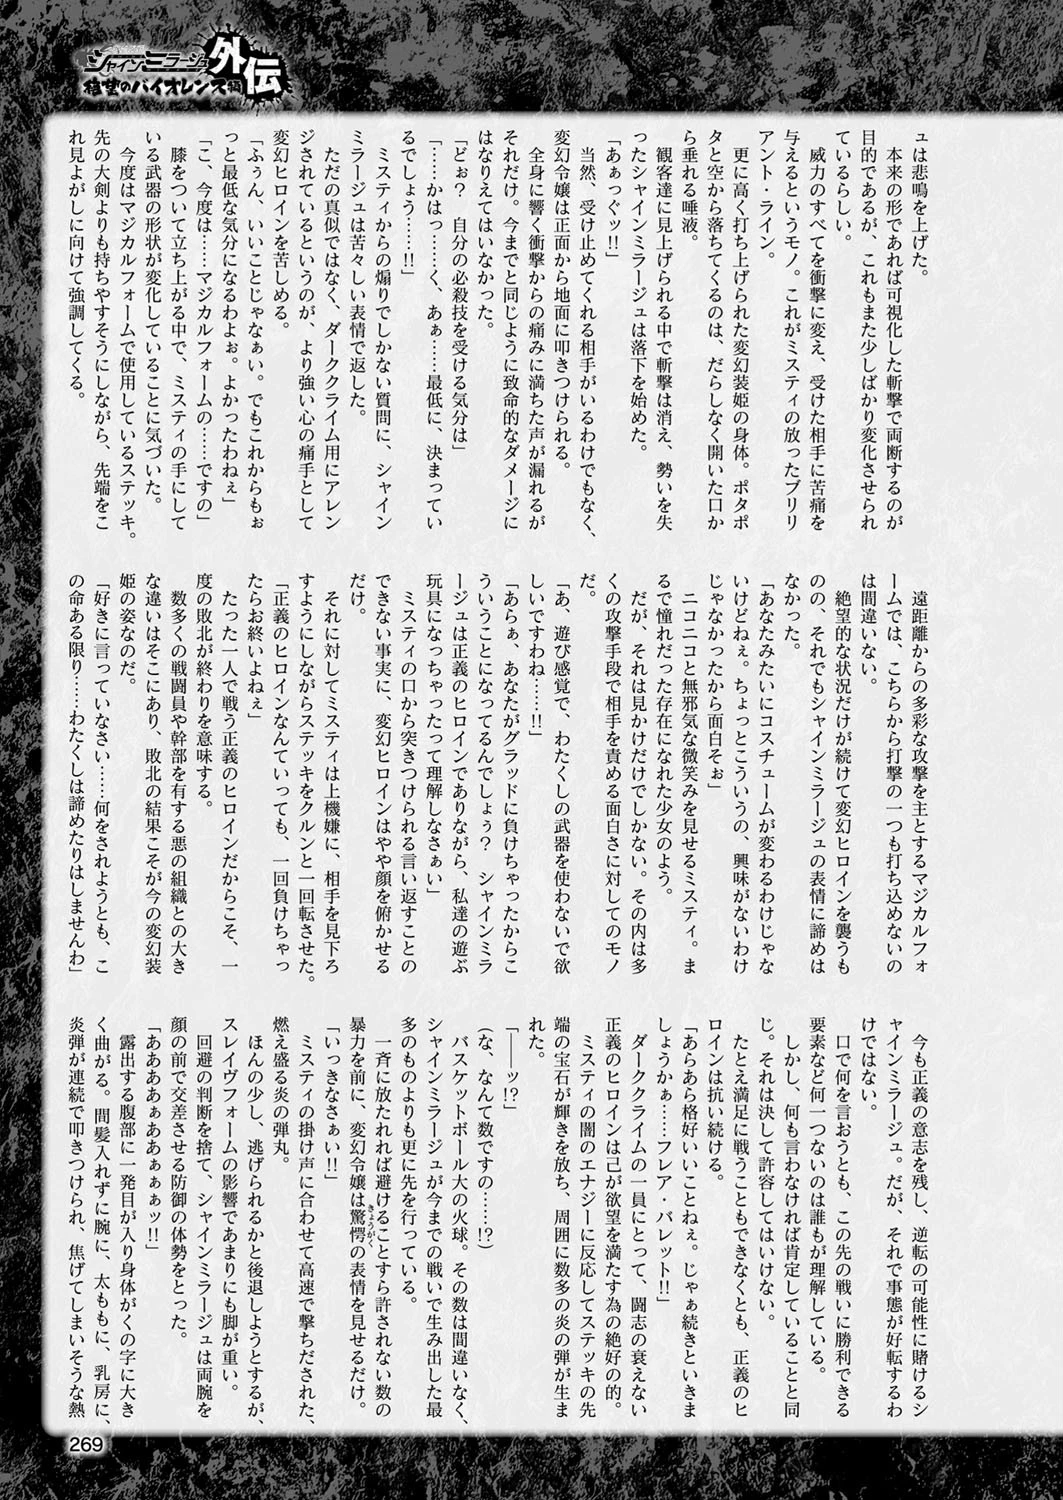 シャインミラージュ
外伝
絶望のバイオレンス編
ュは悲鳴を上げた。
　本来の形であれば可視化した斬撃で両断するのが
目的であるが、これもまた少しばかり変化させられ
ているらしい。
　威力のすべてを衝撃に変え、受けた相手に苦痛を
与えるというモノ。これがミスティの放ったブリリ
アント・ライン。
　更に高く打ち上げられた変幻装姫の身体。ポタポ
タと空から落ちてくるのは、だらしなく開いた口か
ら垂れる唾液。
　観客達に見上げられる中で斬撃は消え、勢いを失
ったシャインミラージュは落下を始めた。
「あぁっぐッ!!」
　当然、受け止めてくれる相手がいるわけでもなく、
変幻令嬢は正面から地面に叩きつけられる。
　全身に響く衝撃からの痛みに満ちた声が漏れるが
それだけ。今までと同じように致命的なダメージに
はなりえてはいなかった。
「どぉ？　自分の必殺技を受ける気分は」
「……かはっ……く、あぁ……最低に、決まってい
るでしょう……!!」
　ミスティからの煽りでしかない質問に、シャイン
ミラージュは苦々しい表情で返した。
　ただの真似ではなく、ダーククライム用にアレン
ジされているというのが、より強い心の痛手として
変幻ヒロインを苦しめる。
「ふぅん、いいことじゃなぁい。でもこれからもぉ
っと最低な気分になるわよぉ。よかったわねぇ」
「こ、今度は……マジカルフォームの……ですの」
　膝をついて立ち上がる中で、ミスティの手にして
いる武器の形状が変化していることに気づいた。
　今度はマジカルフォームで使用しているステッキ。
先の大剣よりも持ちやすそうにしながら、先端をこ
れ見よがしに向けて強調してくる。
　遠距離からの多彩な攻撃を主とするマジカルフォ
ームでは、こちらから打撃の一つも打ち込めないの
は間違いない。
　絶望的な状況だけが続けて変幻ヒロインを襲うも
のの、それでもシャインミラージュの表情に諦めは
なかった。
「あなたみたいにコスチュームが変わるわけじゃな
いけどねぇ。ちょっとこういうの、興味がないわけ
じゃなかったから面白そぉ」
　ニコニコと無邪気な微笑みを見せるミスティ。ま
るで憧れだった存在になれた少女のよう。
　だが、それは見かけだけでしかない。その内は多
くの攻撃手段で相手を責める面白さに対してのモノ
だ。
「あ、遊び感覚で、わたくしの武器を使わないで欲
しいですわね……!!」
「あらぁ、あなたがグラッドに負けちゃったからこ
ういうことになってるんでしょぅ？　シャインミラ
ージュは正義のヒロインでありながら、私達の遊ぶ
玩具になっちゃったって理解しなさぁい」
　ミスティの口から突きつけられる言い返すことの
できない事実に、変幻ヒロインはやや顔を俯かせる
だけ。
　それに対してミスティは上機嫌に、相手を見下ろ
すようにしながらステッキをクルンと一回転させた。
「正義のヒロインなんていっても、一回負けちゃっ
たらお終いよねぇ」
　たった一人で戦う正義のヒロインだからこそ、一
度の敗北が終わりを意味する。
　数多くの戦闘員や幹部を有する悪の組織との大き
な違いはそこにあり、敗北の結果こそが今の変幻装
姫の姿なのだ。
「好きに言っていなさい……何をされようとも、こ
の命ある限り……わたくしは諦めたりはしませんわ」
　今も正義の意志を残し、逆転の可能性に賭けるシ
ャインミラージュ。だが、それで事態が好転するわ
けではない。
　口で何を言おうとも、この先の戦いに勝利できる
要素など何一つないのは誰もが理解している。
　しかし、何も言わなければ肯定していることと同
じ。それは決して許容してはいけない。
　たとえ満足に戦うこともできなくとも、正義のヒ
ロインは抗い続ける。
「あらあら格好いいことねぇ。じゃぁ続きといきま
しょうかぁ……フレア・バレット!!」
　ダーククライムの一員にとって、闘志の衰えない
正義のヒロインは己が欲望を満たす為の絶好の的。
　ミスティの闇のエナジーに反応してステッキの先
端の宝石が輝きを放ち、周囲に数多の炎の弾が生ま
れた。
「――ッ!?」
（な、なんて数ですの……!?）
　バスケットボール大の火球。その数は間違いなく、
シャインミラージュが今までの戦いで生み出した最
多のものよりも更に先を行っている。
　一斉に放たれれば避けることすら許されない数の
暴力を前に、変幻令嬢は驚愕の表情を見せるだけ。
きょうがく
「いっきなさぁい!!」
　ミスティの掛け声に合わせて高速で撃ちだされた、
燃え盛る炎の弾丸。
　ほんの少し、逃げられるかと後退しようとするが、
スレイヴフォームの影響であまりにも脚が重い。
　回避の判断を捨て、シャインミラージュは両腕を
顔の前で交差させる防御の体勢をとった。
「ああああぁああぁぁぁッ!!」
　露出する腹部に一発目が入り身体がくの字に大き
く曲がる。間髪入れずに腕に、太ももに、乳房に、
炎弾が連続で叩きつけられ、焦げてしまいそうな熱
269